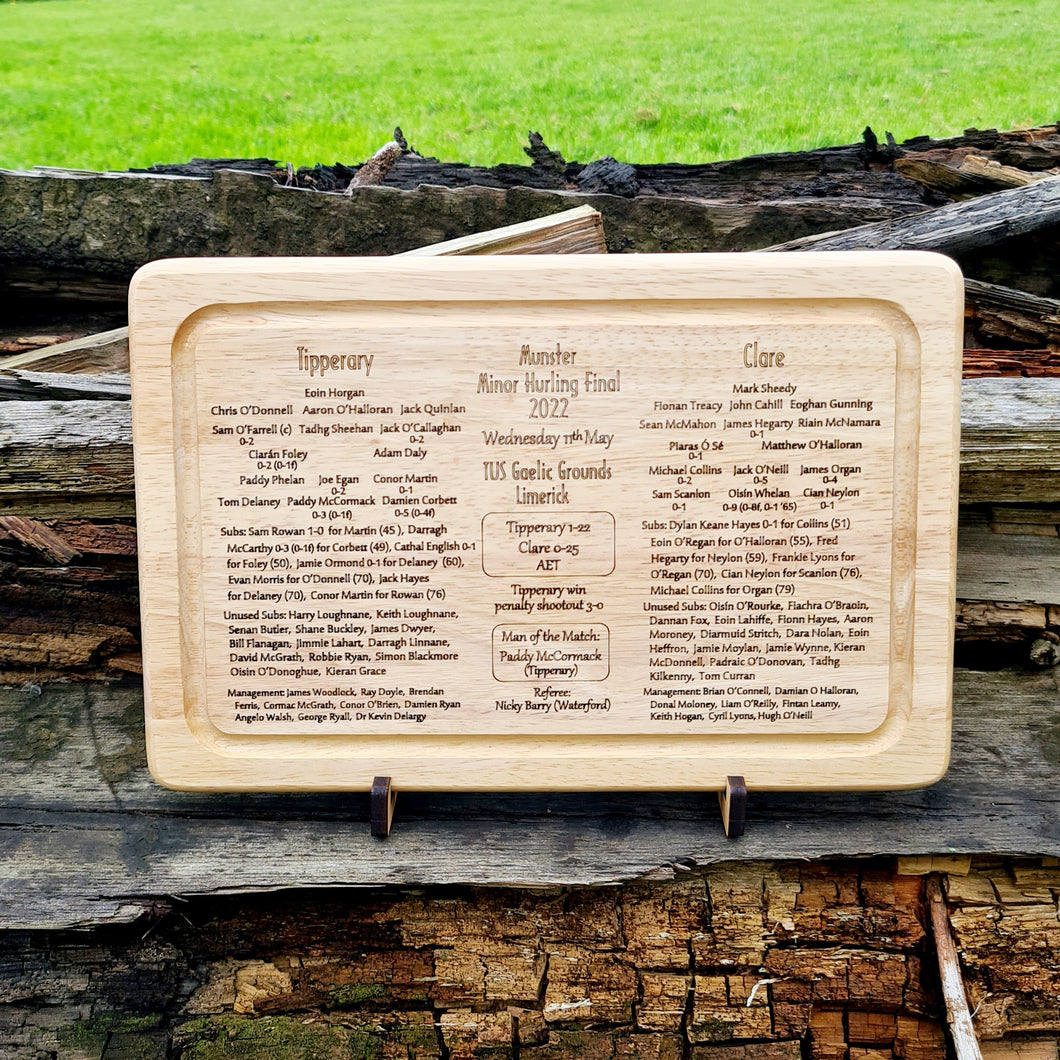 Tipperary
Eoin Horgan
Chris O'Donnell Aaron O'Halloran Jack Quinlan
Sam O'Farrell (c) Tadhg Sheehan Jack O'Callaghan
0-2 0-2
Ciarán Foley Adam Daly
0-2 (0-1f)
Paddy Phelan Joe Egan Conor Martin
0-2 0-1
Tom Delaney Paddy McCormack Damien Corbett
0-3 (0-1f) 0-5 (0-4f)
Subs: Sam Rowan 1-0 for Martin (45 ), Darragh
McCarthy 0-3 (0-1f) for Corbett (49), Cathal English 0-1
for Foley (50), Jamie Ormond 0-1 for Delaney (60),
Evan Morris for O'Donnell (70), Jack Hayes
for Delaney (70), Conor Martin for Rowan (76)
Unused Subs: Harry Loughnane, Keith Loughnane,
Senan Butler, Shane Buckley, James Dwyer,
Bill Flanagan, Jimmie Lahart, Darragh Linnane,
David McGrath, Robbie Ryan, Simon Blackmore
Oisin O'Donoghue, Kieran Grace
Management: James Woodlock, Ray Doyle, Brendan
Ferris, Cormac McGrath, Conor O'Brien, Damien Ryan
Angelo Walsh, George Ryall, Dr Kevin Delargy
Munster
Minor Hurling Final
2022
Wednesday 11th May
TUS Gaelic Grounds
Limerick
Tipperary 1-22
Clare 0-25
AET
Tipperary win
penalty shootout 3-0
Man of the Match:
Paddy McCormack
(Tipperary)
Referee:
Nicky Barry (Waterford)
Clare
Mark Sheedy
Fionan Treacy John Cahill Eoghan Gunning
Sean McMahon James Hegarty Riain McNamara
0-1
Piaras Ó Sé Matthew O'Halloran
0-1
Michael Collins Jack O'Neill James Organ
0-2 0-5 0-4
Sam Scanlon Oisín Whelan Cian Neylon
0-1 0-9 (0-8f, 0-1 '65) 0-1
Subs: Dylan Keane Hayes 0-1 for Collins (51)
Eoin O'Regan for O'Halloran (55), Fred
Hegarty for Neylon (59), Frankie Lyons for
O'Regan (70), Cian Neylon for Scanlon (76),
Michael Collins for Organ (79)
Unused Subs: Oisín O'Rourke, Fiachra O'Braoin,
Dannan Fox, Eoin Lahiffe, Fionn Hayes, Aaron
Moroney, Diarmuid Stritch, Dara Nolan, Eoin
Heffron, Jamie Moylan, Jamie Wynne, Kieran
McDonnell, Padraic O'Donovan, Tadhg
Kilkenny, Tom Curran
Management: Brian O'Connell, Damian O Halloran,
Donal Moloney, Liam O'Reilly, Fintan Leamy,
Keith Hogan, Cyril Lyons, Hugh O'Neill